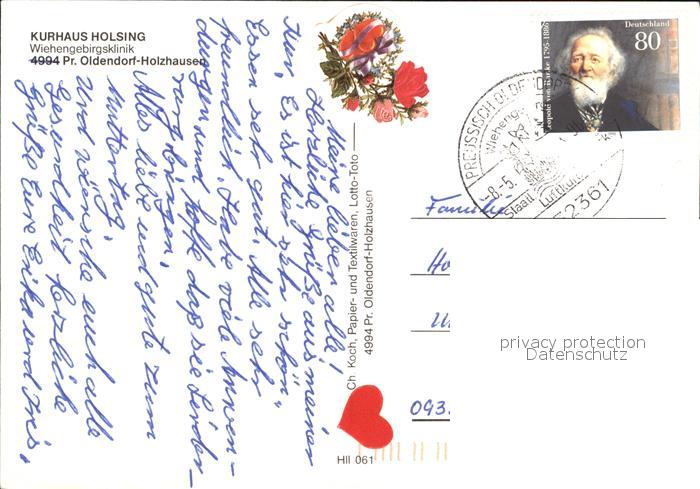 KURHAUS HOLSING
Wiehengebirgsklinik
4994 Pr. Oldendorf-Holzhausen
Meine lieben alle!
Herzliche Grüße aus meiner
Kur. Es ist hier sehr schön,
Essen sehr gut. Alle sehr
freundlich. Habe viele Anwen-
dungen und hoffe daß sie Linder-
rung bringen.
Alles liebe und gute zum
Muttertag,
und wünsche euch alle
Gesundheit herzliche
Grüße Eure Erika und Iris.
Ch. Koch, Papier- und Textilwaren, Lotto-Toto
4994 Pr. Oldendorf-Holzhausen
Hll 061
Deutschland
80
Leopold von Ranke 1795-1886
PREUSSISCH OLDENDORF
Wiehengeb
-8.-5.
Staatl. Luftkur
32361
Familie
Ho
093.
privacy protection
Datenschutz